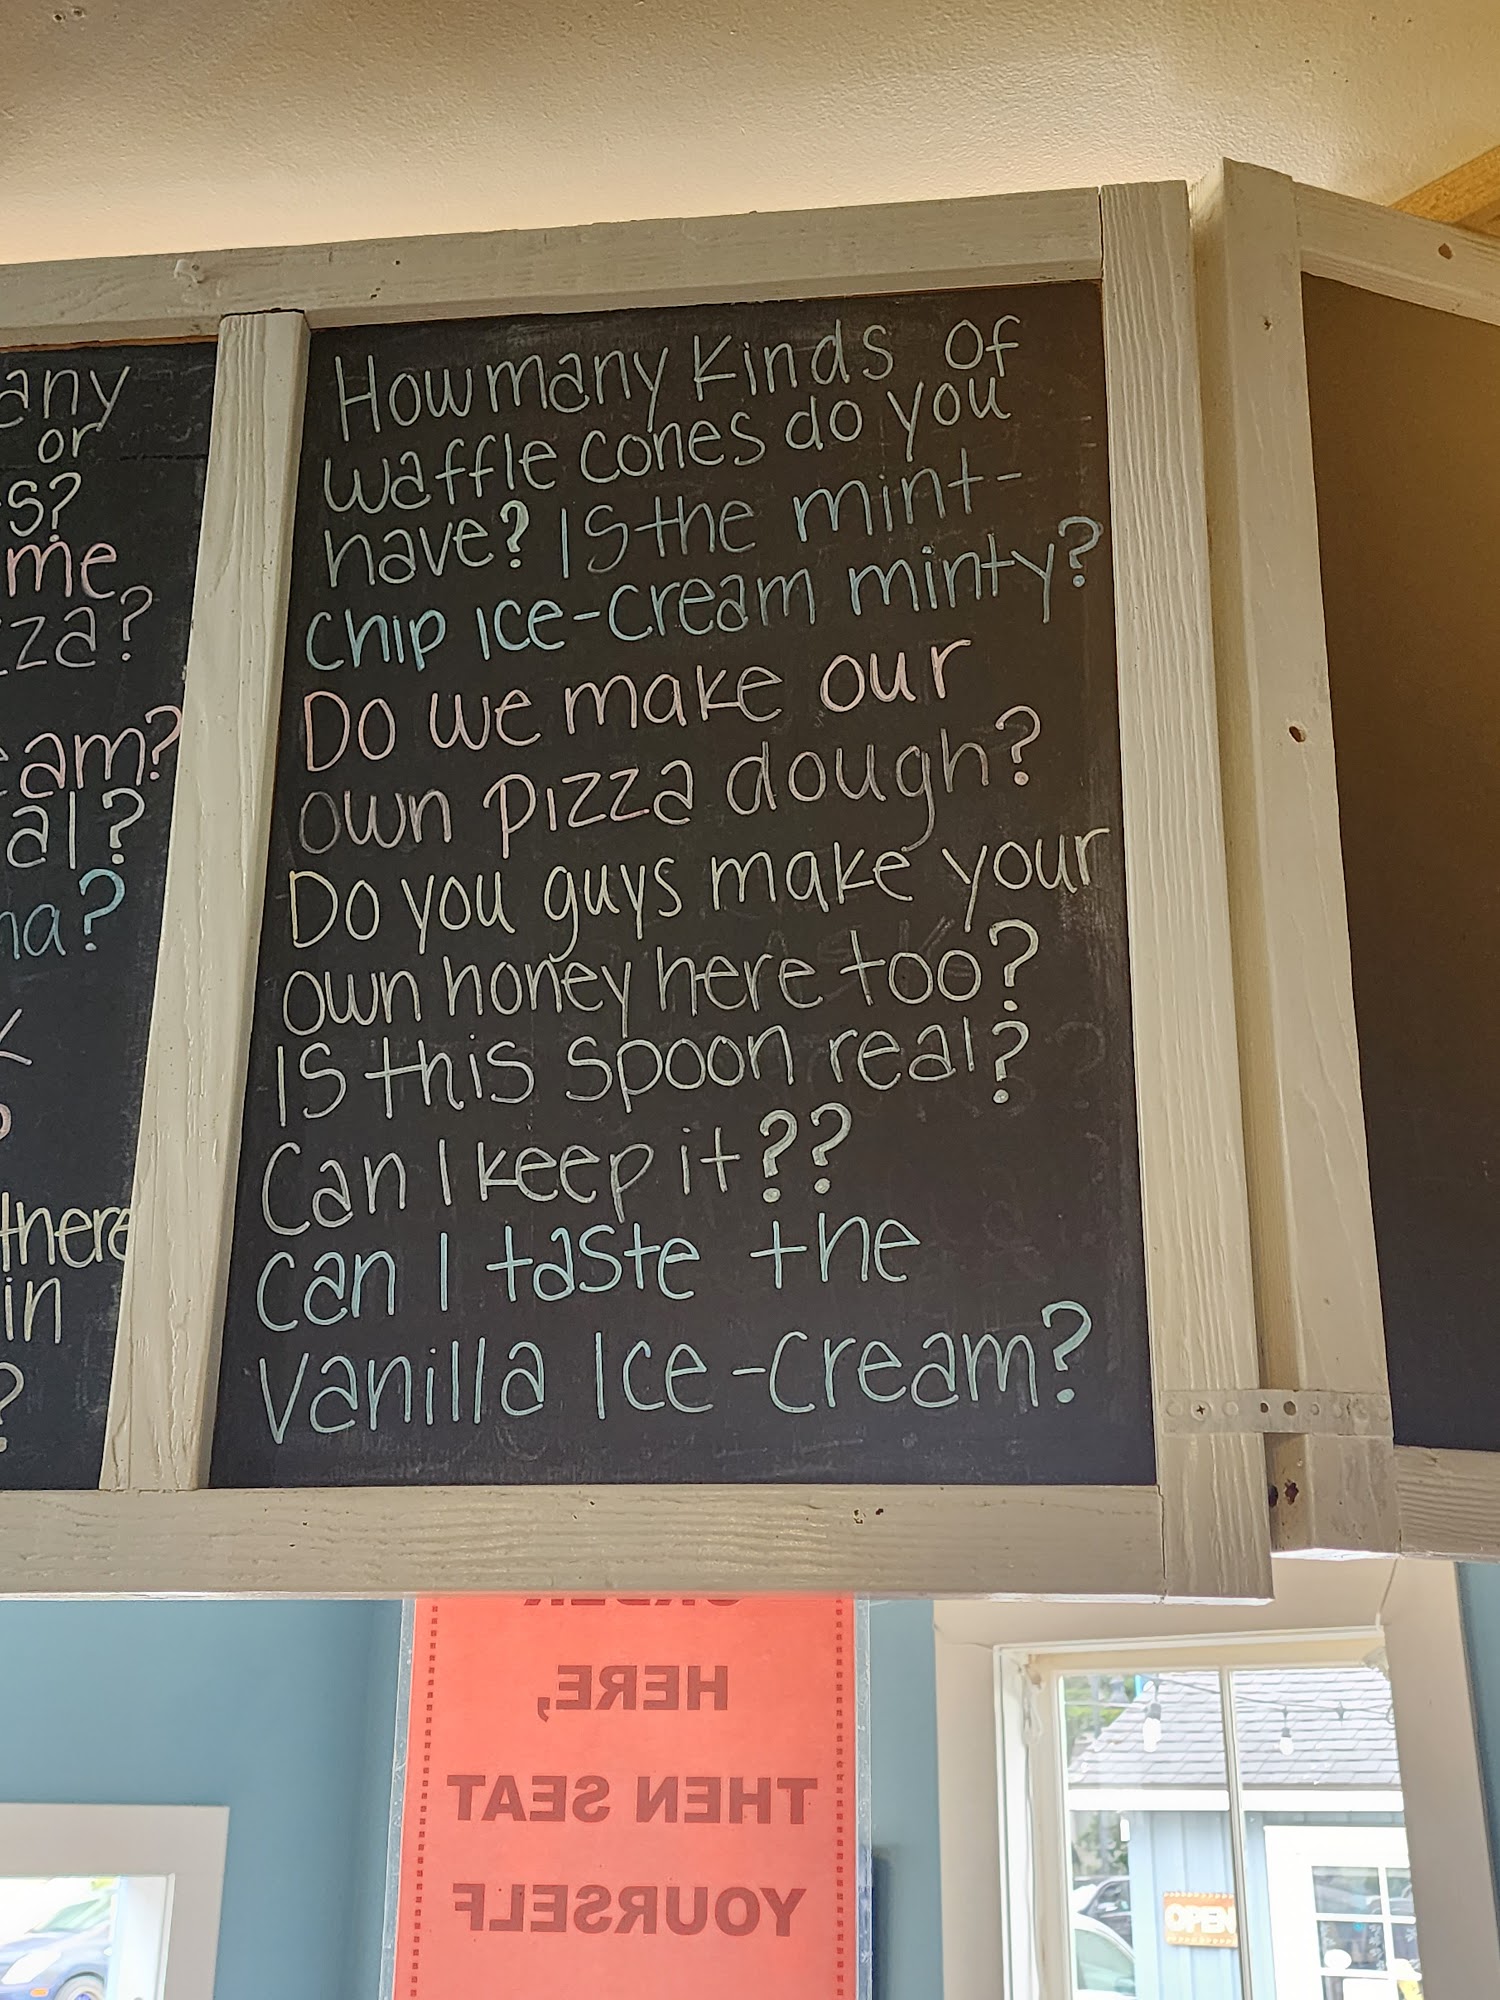 any
or
s?
me
zza?
eam?
al?
na?
there
in
?
How many kinds of
waffle cones do you
have? Is the mint-
chip ice-cream minty?
Do we make our
own pizza dough?
Do you guys make your
own honey here too?
Is this spoon real?
Can I keep it??
Can I taste the
Vanilla Ice-cream?
ORDER
HERE,
THEN SEAT
YOURSELF
OPEN